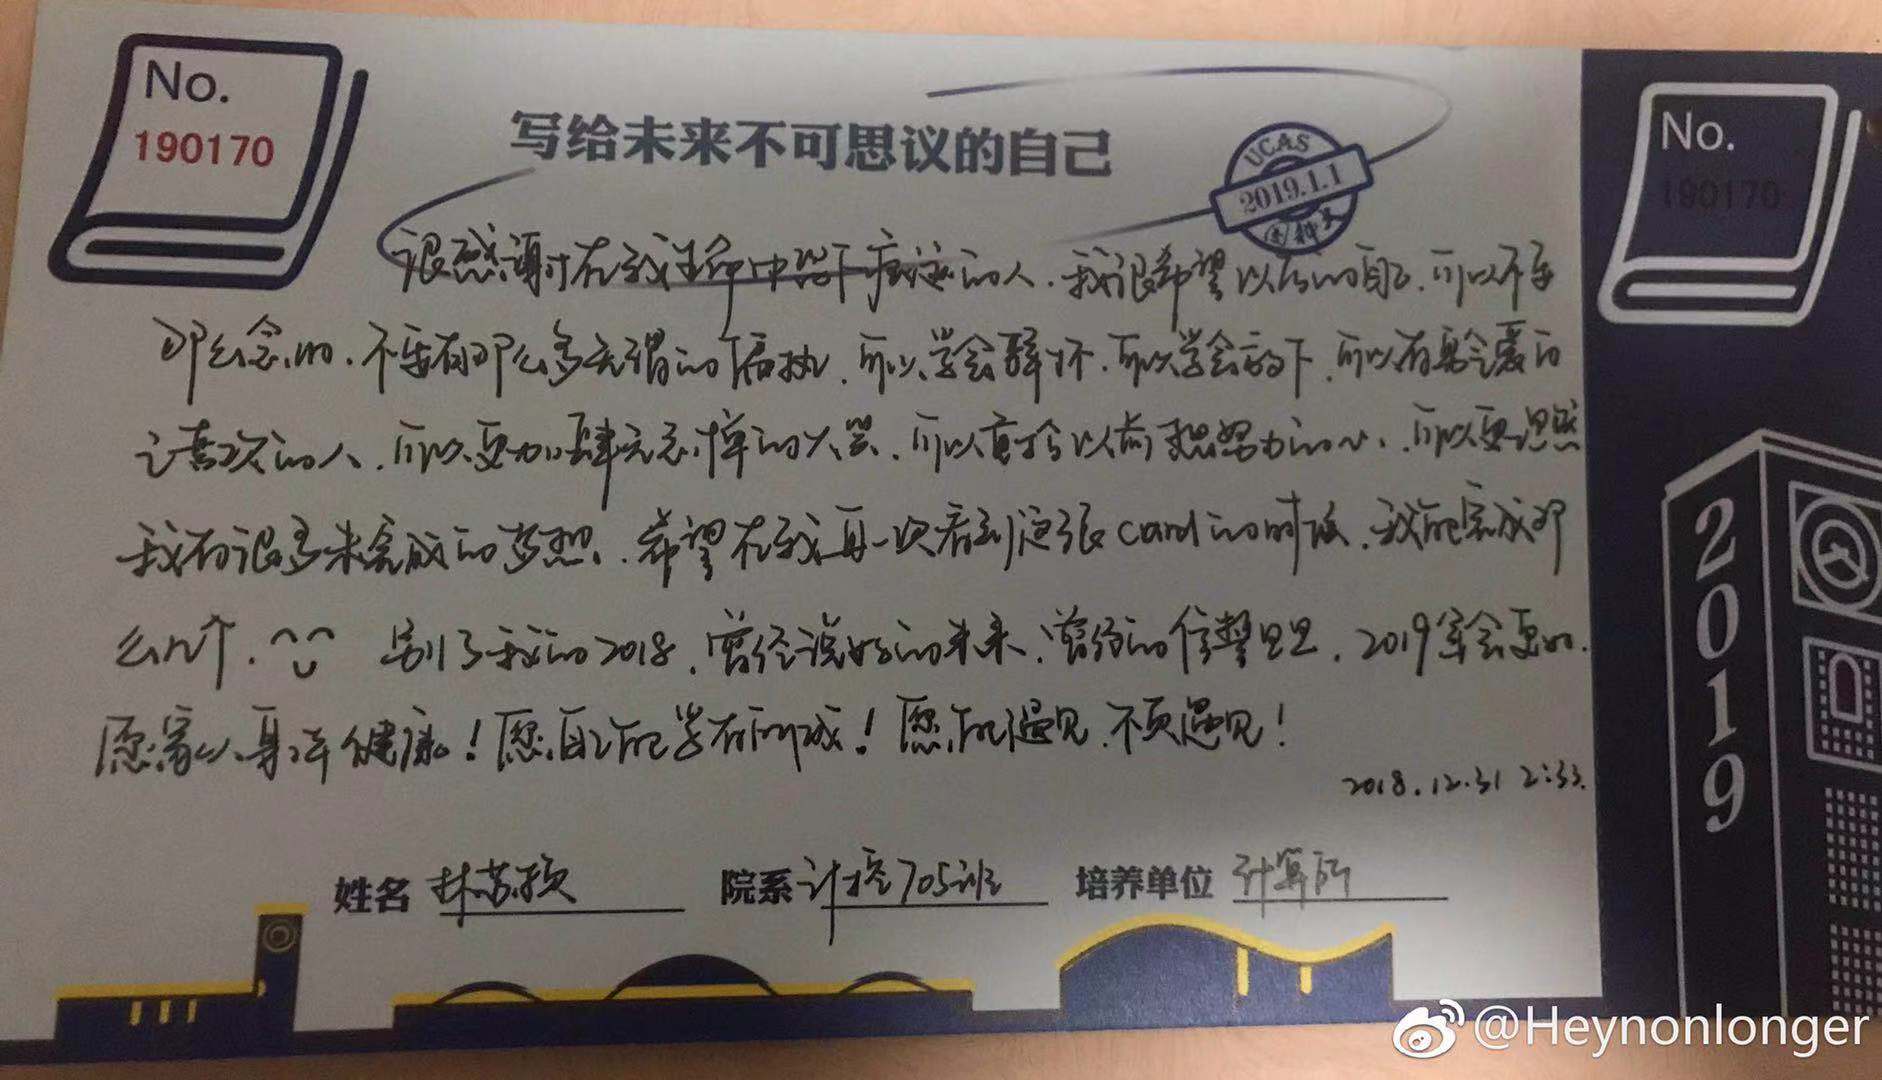 No.
190170
写给未来不可思议的自己
UCAS
2019.1.1
国科大
No.
190170
很感谢时在我生命中留下痕迹的人.我很希望以后的自己.可以不要
那么念旧.不要有那么多无谓的偏执.可以学会释怀.可以学会放下.可以有勇气爱自
己喜欢的人.可以更加肆无忌惮的大笑.可以真于以前努力的.可以更坦然
我有很多未完成的梦想.希望在我再一次看到这张card的时候.我能完成那
么几个.
别了我的2018.曾经说好的未来.曾经的信誓旦旦.2019会更好.
愿家人身体健康!愿自己能学有所成!愿能遇见.不负遇见!
2018.12.31 2:33.
姓名 林苏颖
院系 计控705班
培养单位 计算所
2019
@Heynonlonger